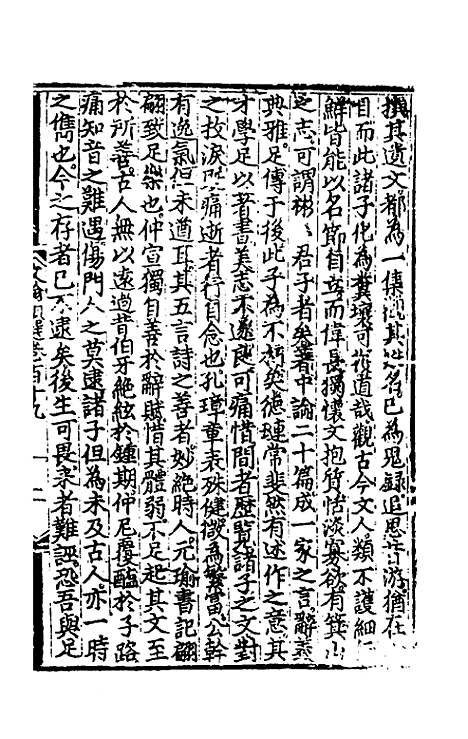 撰其遺文都為一集觀其姓名已為鬼録追思昔游猶在
目而此諸子化為糞壤可復道哉觀古今文人類不護細行
鮮皆能以名節自立而偉長獨懷文抱質恬淡寡欲有箕山
之志可謂彬彬君子者矣著中論二十篇成一家之言辭義
典雅足傳于後此子為不朽矣德璉常斐然有述作之意其
才學足以著書美志不遂良可痛惜間者歷覽諸子之文對
之抆淚既痛逝者行自念也孔璋章表殊健微為繁富公幹
有逸氣但未遒耳其五言詩之善者妙絶時人元瑜書記翩
翩致足樂也仲宣獨自善於辭賦惜其體弱不足起其文至
於所善古人無以遠過昔伯牙絶絃於鍾期仲尼覆醢於子路
痛知音之難遇傷門人之莫逮諸子但為未及古人亦一時
之儁也今之存者已不逮矣後生可畏來者難誣恐吾與足